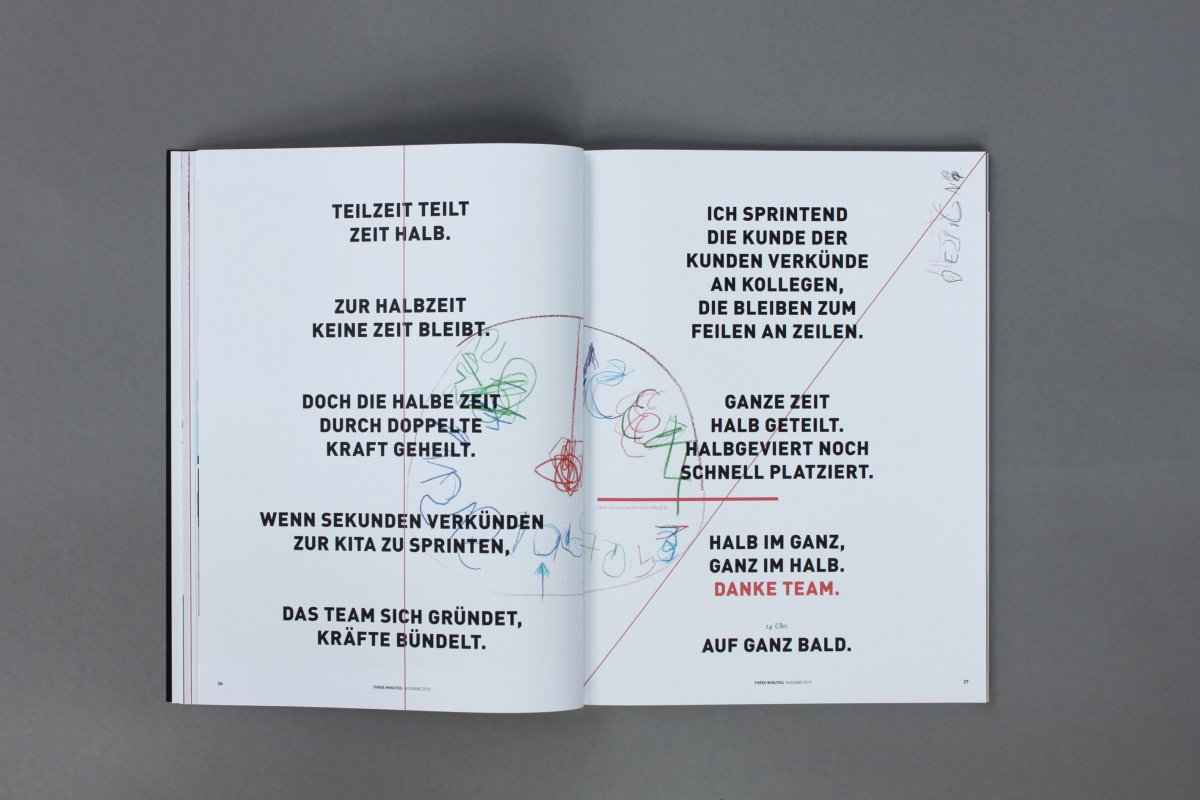 TEILZEIT TEILT
ZEIT HALB.
ZUR HALBZEIT
KEINE ZEIT BLEIBT.
DOCH DIE HALBE ZEIT
DURCH DOPPELTE
KRAFT GEHEILT.
WENN SEKUNDEN VERKÜNDEN
ZUR KITA ZU SPRINTEN,
DAS TEAM SICH GRÜNDET,
KRÄFTE BÜNDELT.
36
THREE MINUTES AUSGABE 2015
ICH SPRINTEND
DIE KUNDE DER
KUNDEN VERKÜNDE
AN KOLLEGEN,
DIE BLEIBEN ZUM
FEILEN AN ZEILEN.
GANZE ZEIT
HALB GETEILT.
HALBGEVIERT NOCH
SCHNELL PLATZIERT.
HALB IM GANZ,
GANZ IM HALB.
DANKE TEAM.
14 Uhr.
AUF GANZ BALD.
THREE MINUTES AUSGABE 2015
37